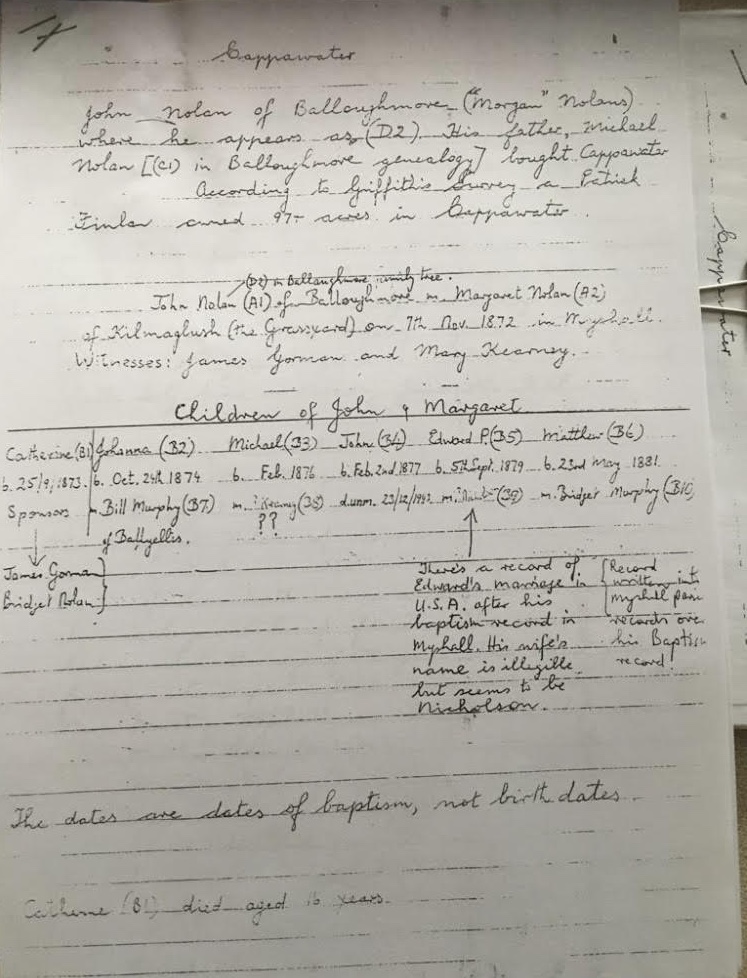 Cappawater
John Nolan of Balloughmore ("Morgan" Nolans)
where he appears as (D2). His father, Michael
Nolan [(C1) in Balloughmore genealogy] bought Cappawater
According to Griffith's Survey a Patrick
Finlar owned 97+ acres in Cappawater.
(D2) in Balloughmore family tree.
John Nolan (A1) of Balloughmore m. Margaret Nolan (A2)
of Kilmaglush (the Grassyard) on 7th Nov. 1872 in Myshall.
Witnesses: James Gorman and Mary Kearney.
Children of John & Margaret
Catherine (B1) Johanna (B2) Michael (B3) John (B4) Edward P. (B5) Matthew (B6)
b. 25/9/1873. b. Oct. 24th 1874 b. Feb. 1876 b. Feb. 2nd 1877 b. 5th Sept. 1879 b. 23rd May 1881.
Sponsors m. Bill Murphy (B7) m. ? Kearney (B8) d. unm. 23/12/1942 m. (B9) m. Bridget Murphy (B10)
of Ballyellis. ??
James Gorman
Bridget Nolan
There's a record of
Edward's marriage in
U.S.A. after his
baptism record in
Myshall. His wife's
name is illegible
but seems to be
Nicholson.
[Record
written into
Myshall
records over
his Baptism
record]
The dates are dates of baptism, not birth dates.
Catherine (B1) died aged 16 years.
Cappawater